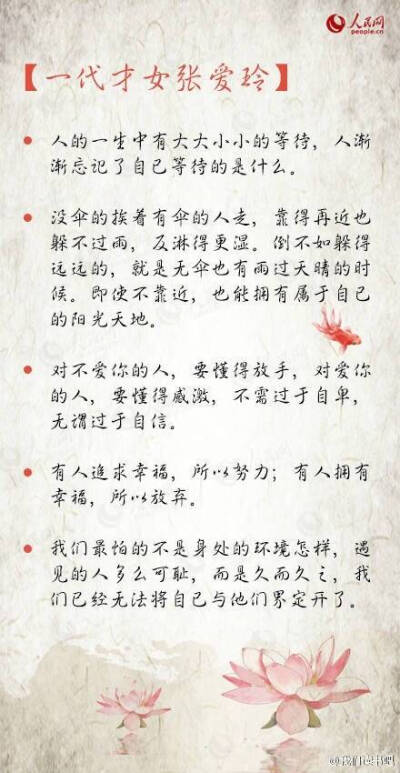 人民网
people.cn
【一代才女张爱玲】
人的一生中有大大小小的等待，人渐
渐忘记了自己等待的是什么。
没伞的挨着有伞的人走，靠得再近也
躲不过雨，反淋得更湿。倒不如躲得
远远的，就是无伞也有雨过天晴的时
候。即使不靠近，也能拥有属于自己
的阳光天地。
对不爱你的人，要懂得放手，对爱你
的人，要懂得感激，不需过于自卑，
无谓过于自信。
有人追求幸福，所以努力；有人拥有
幸福，所以放弃。
我们最怕的不是身处的环境怎样，遇
见的人多么可耻，而是久而久之，我
们已经无法将自己与他们界定开了。
@我们读书吧